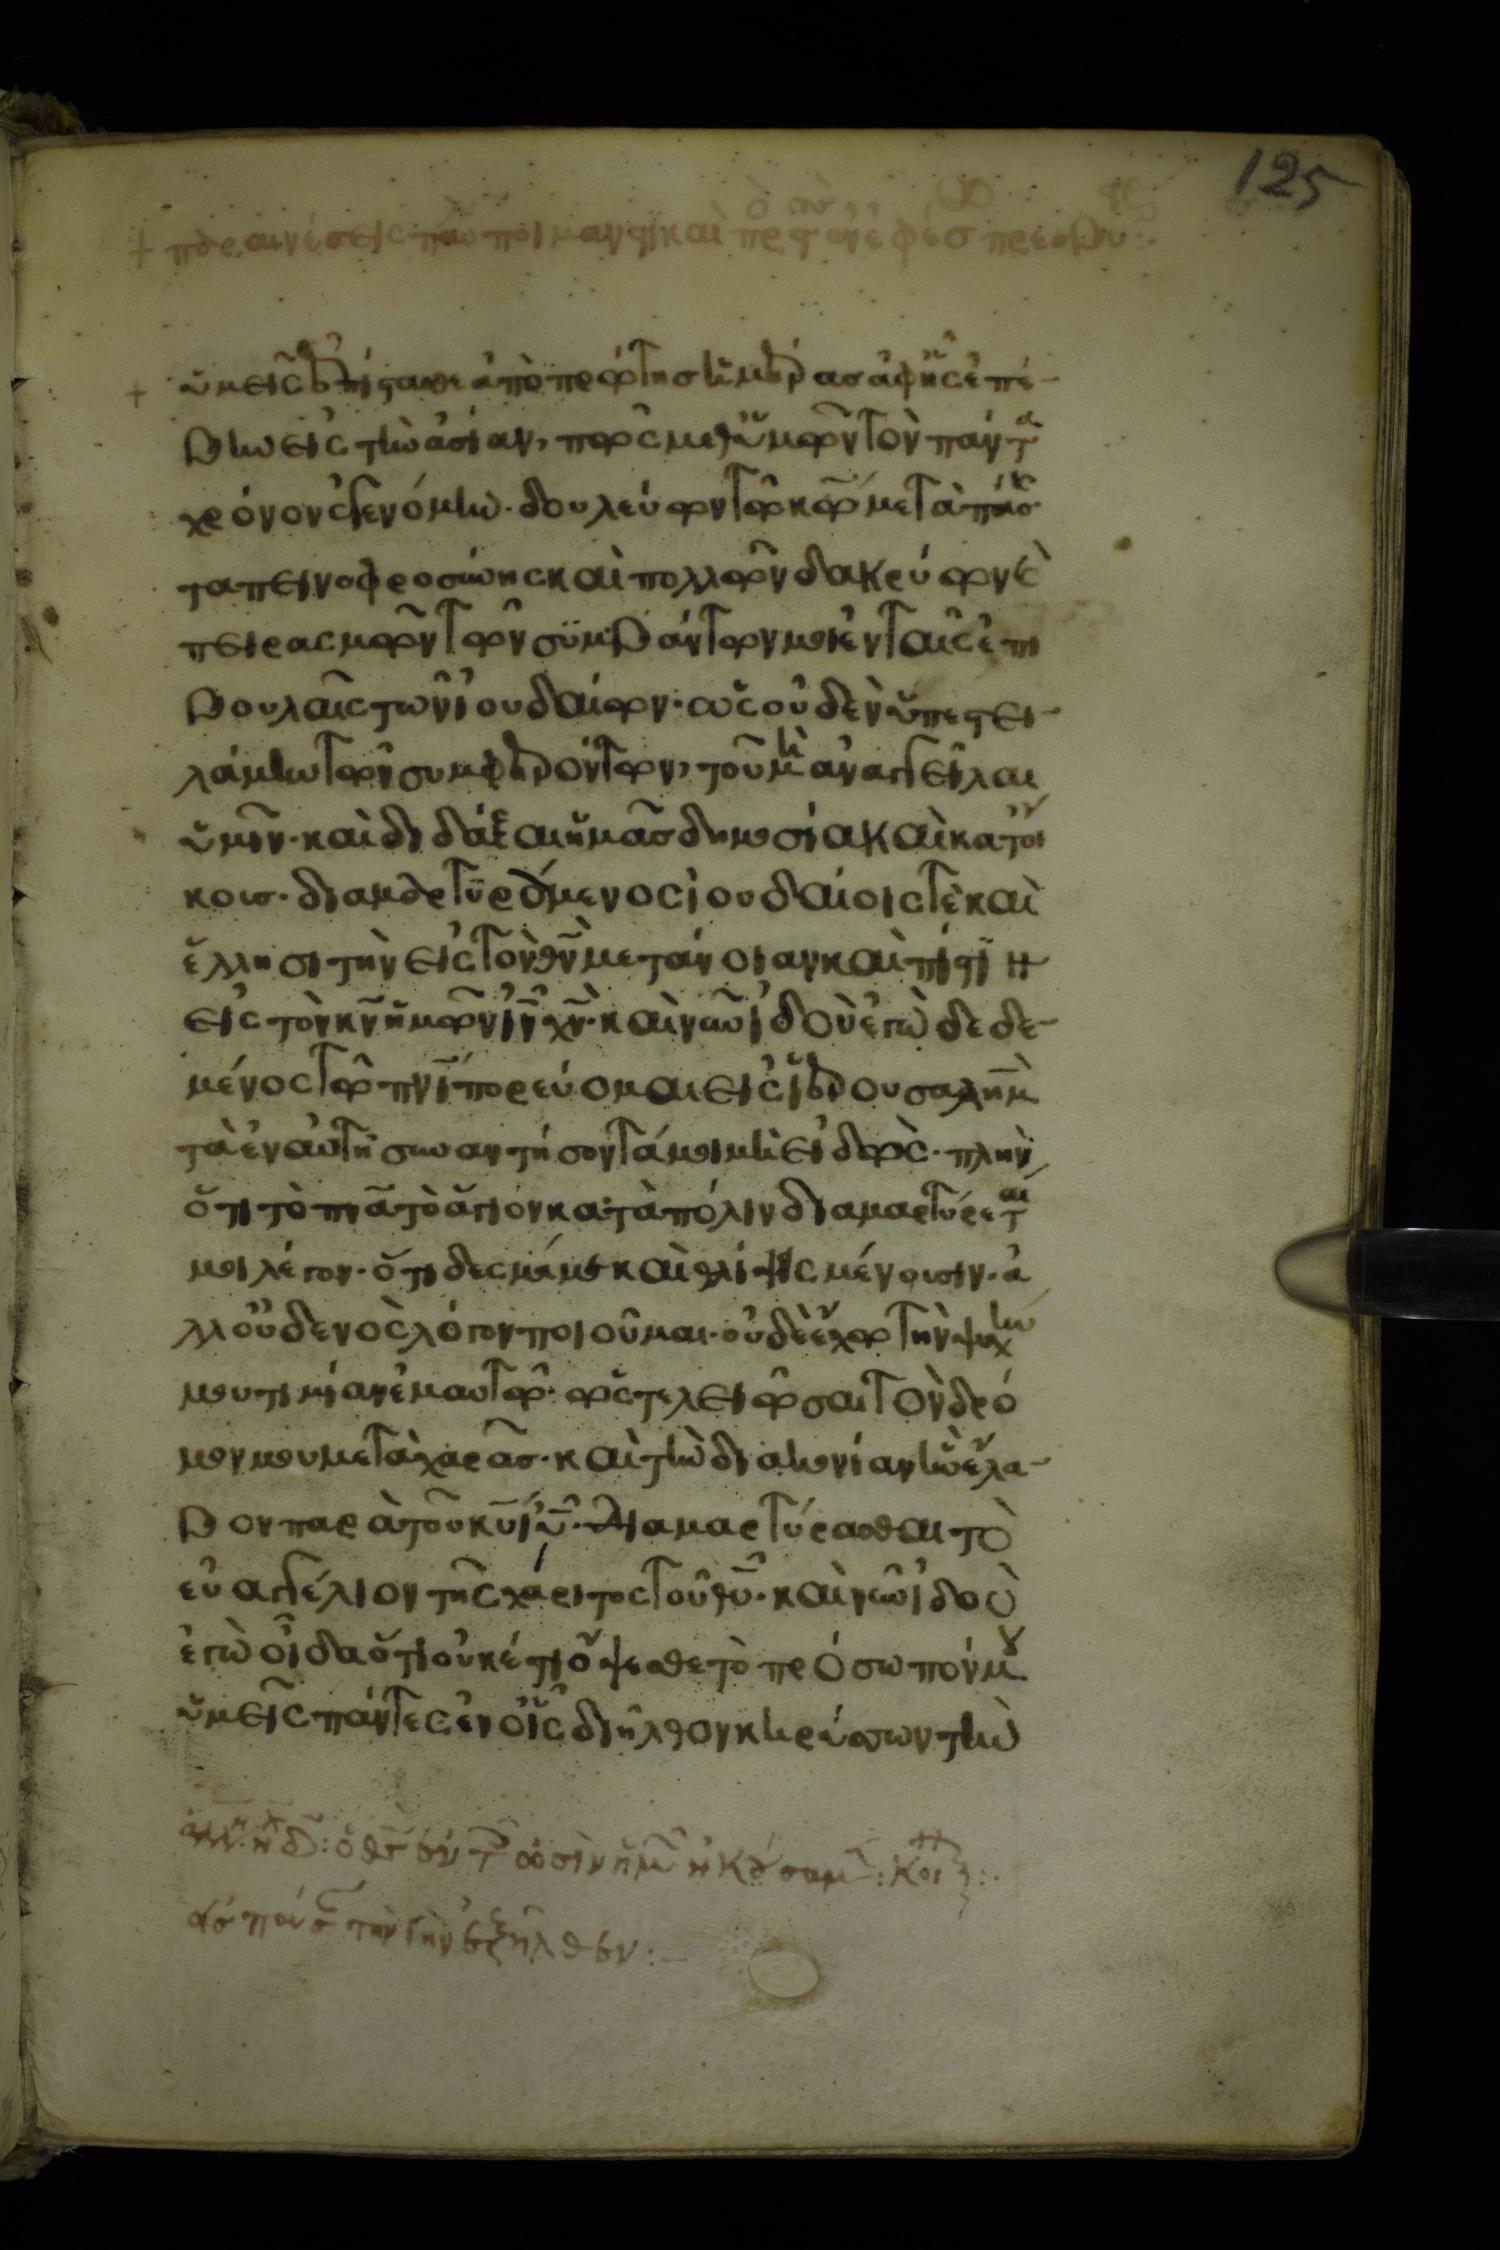 125
+ παραινέσεις παύλου ποιμαντικαὶ πρὸς τῶν ἐφέσω πρεσβυ
+ ὑμεῖς ἐπίστασθε ἀπὸ πρώτης ἡμέρας ἀφ' ἧς ἐπέ-
βην εἰς τὴν ἀσίαν, πῶς μεθ' ὑμῶν τὸν πάντα
χρόνον ἐγενόμην. δουλεύων τῷ κῷ μετὰ πάσης
ταπεινοφροσύνης καὶ πολλῶν δακρύων καὶ
πειρασμῶν τῶν συμβάντων μοι ἐν ταῖς ἐπι
βουλαῖς τῶν ἰουδαίων. ὡς οὐδὲν ὑπεστει-
λάμην τῶν συμφερόντων, τοῦ μὴ ἀναγγεῖλαι
ὑμῖν. καὶ διδάξαι ὑμᾶς δημοσία καὶ κατ' οἴ
κους. διαμαρτυρόμενος ἰουδαίοις τὲ καὶ
ἕλλησι τὴν εἰς τὸν θν̄ μετάνοιαν καὶ πίστιν
εἰς τὸν κν̄ ἡμῶν ιν̄ χν̄. καὶ νῦν ἰδοὺ ἐγὼ δεδε-
μένος τῷ πνῑ πορεύομαι εἰς ἱερουσαλὴμ
τὰ ἐν αὐτῇ συναντήσοντά μοι μὴ εἰδὼς. πλὴν
ὅτι τὸ πνᾶ τὸ ἅγιον κατὰ πόλιν διαμαρτύρεται
μοι λέγον. ὅτι δεσμά με καὶ θλίψις μένουσιν. ἀ
λλ' οὐδενὸς λόγον ποιοῦμαι. οὐδὲ ἔχω τὴν ψυχὴν
μου τιμίαν ἐμαυτῷ. ὡς τελειῶσαι τὸν δρό
μον μου μετὰ χαρᾶς. καὶ τὴν διακονίαν ἣν ἔλα-
βον παρὰ τοῦ κῡ ιῡ. διαμαρτύρασθαι τὸ
εὐαγγέλιον τῆς χάριτος τοῦ θῡ. καὶ νῦν ἰδοὺ
ἐγὼ οἶδα ὅτι οὐκέτι ὄψεσθε τὸ πρόσωπόν μου
ὑμεῖς πάντες ἐν οἷς διῆλθον κηρύσσων τὴν
ὁ θς̄ ἐν τοῖς ὠσὶν ἡμῶν ἠκούσαμεν: κοι
εἰς πᾶσαν τὴν γῆν ἐξῆλθεν:-